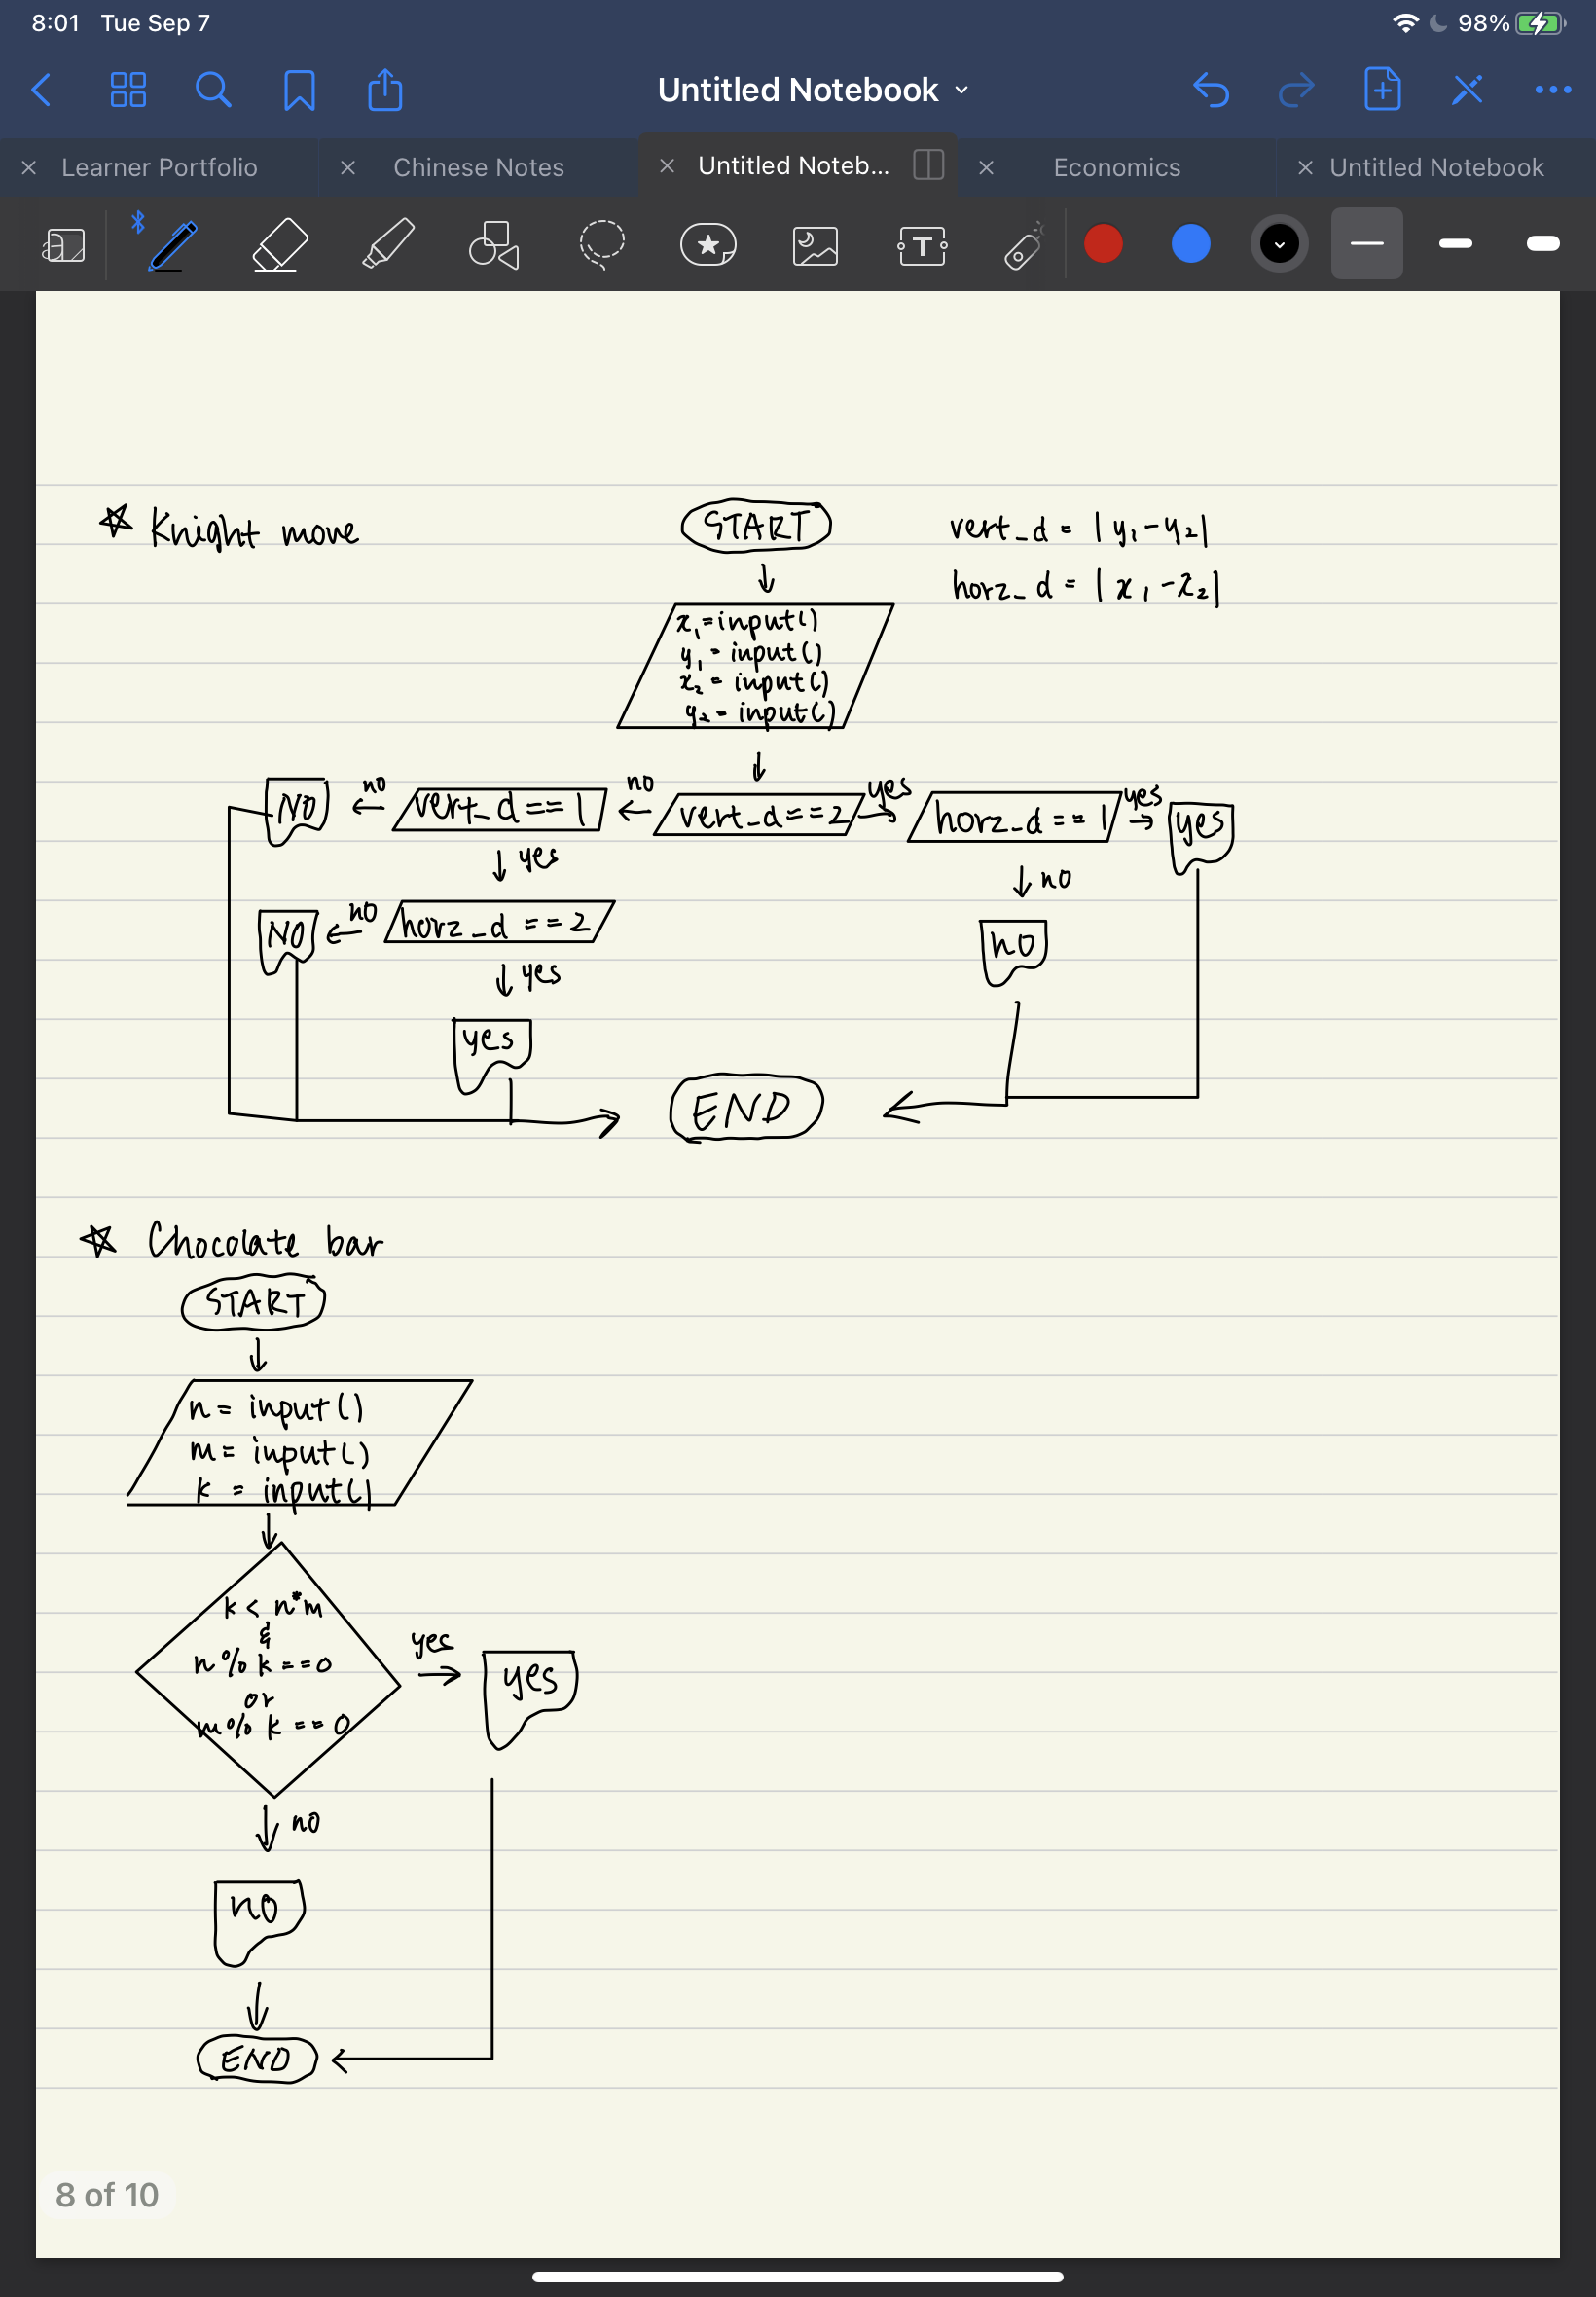 8:01 Tue Sep 7
98%
Untitled Notebook
Learner Portfolio
Chinese Notes
Untitled Noteb...
Economics
Untitled Notebook
T
Knight move
START
vert_d = |y₁-y₂|
horz_d = |x₁-x₂|
x₁=input()
y₁=input()
x₂=input()
y₂=input()
NO
no
vert_d==1
no
vert_d==2
yes
horz_d==1
yes
yes
yes
no
NO
no
horz_d==2
no
yes
yes
END
Chocolate bar
START
n= input()
m= input()
k = input()
k < n*m
&
n%k==0
or
m%k==0
yes
yes
no
no
END
8 of 10